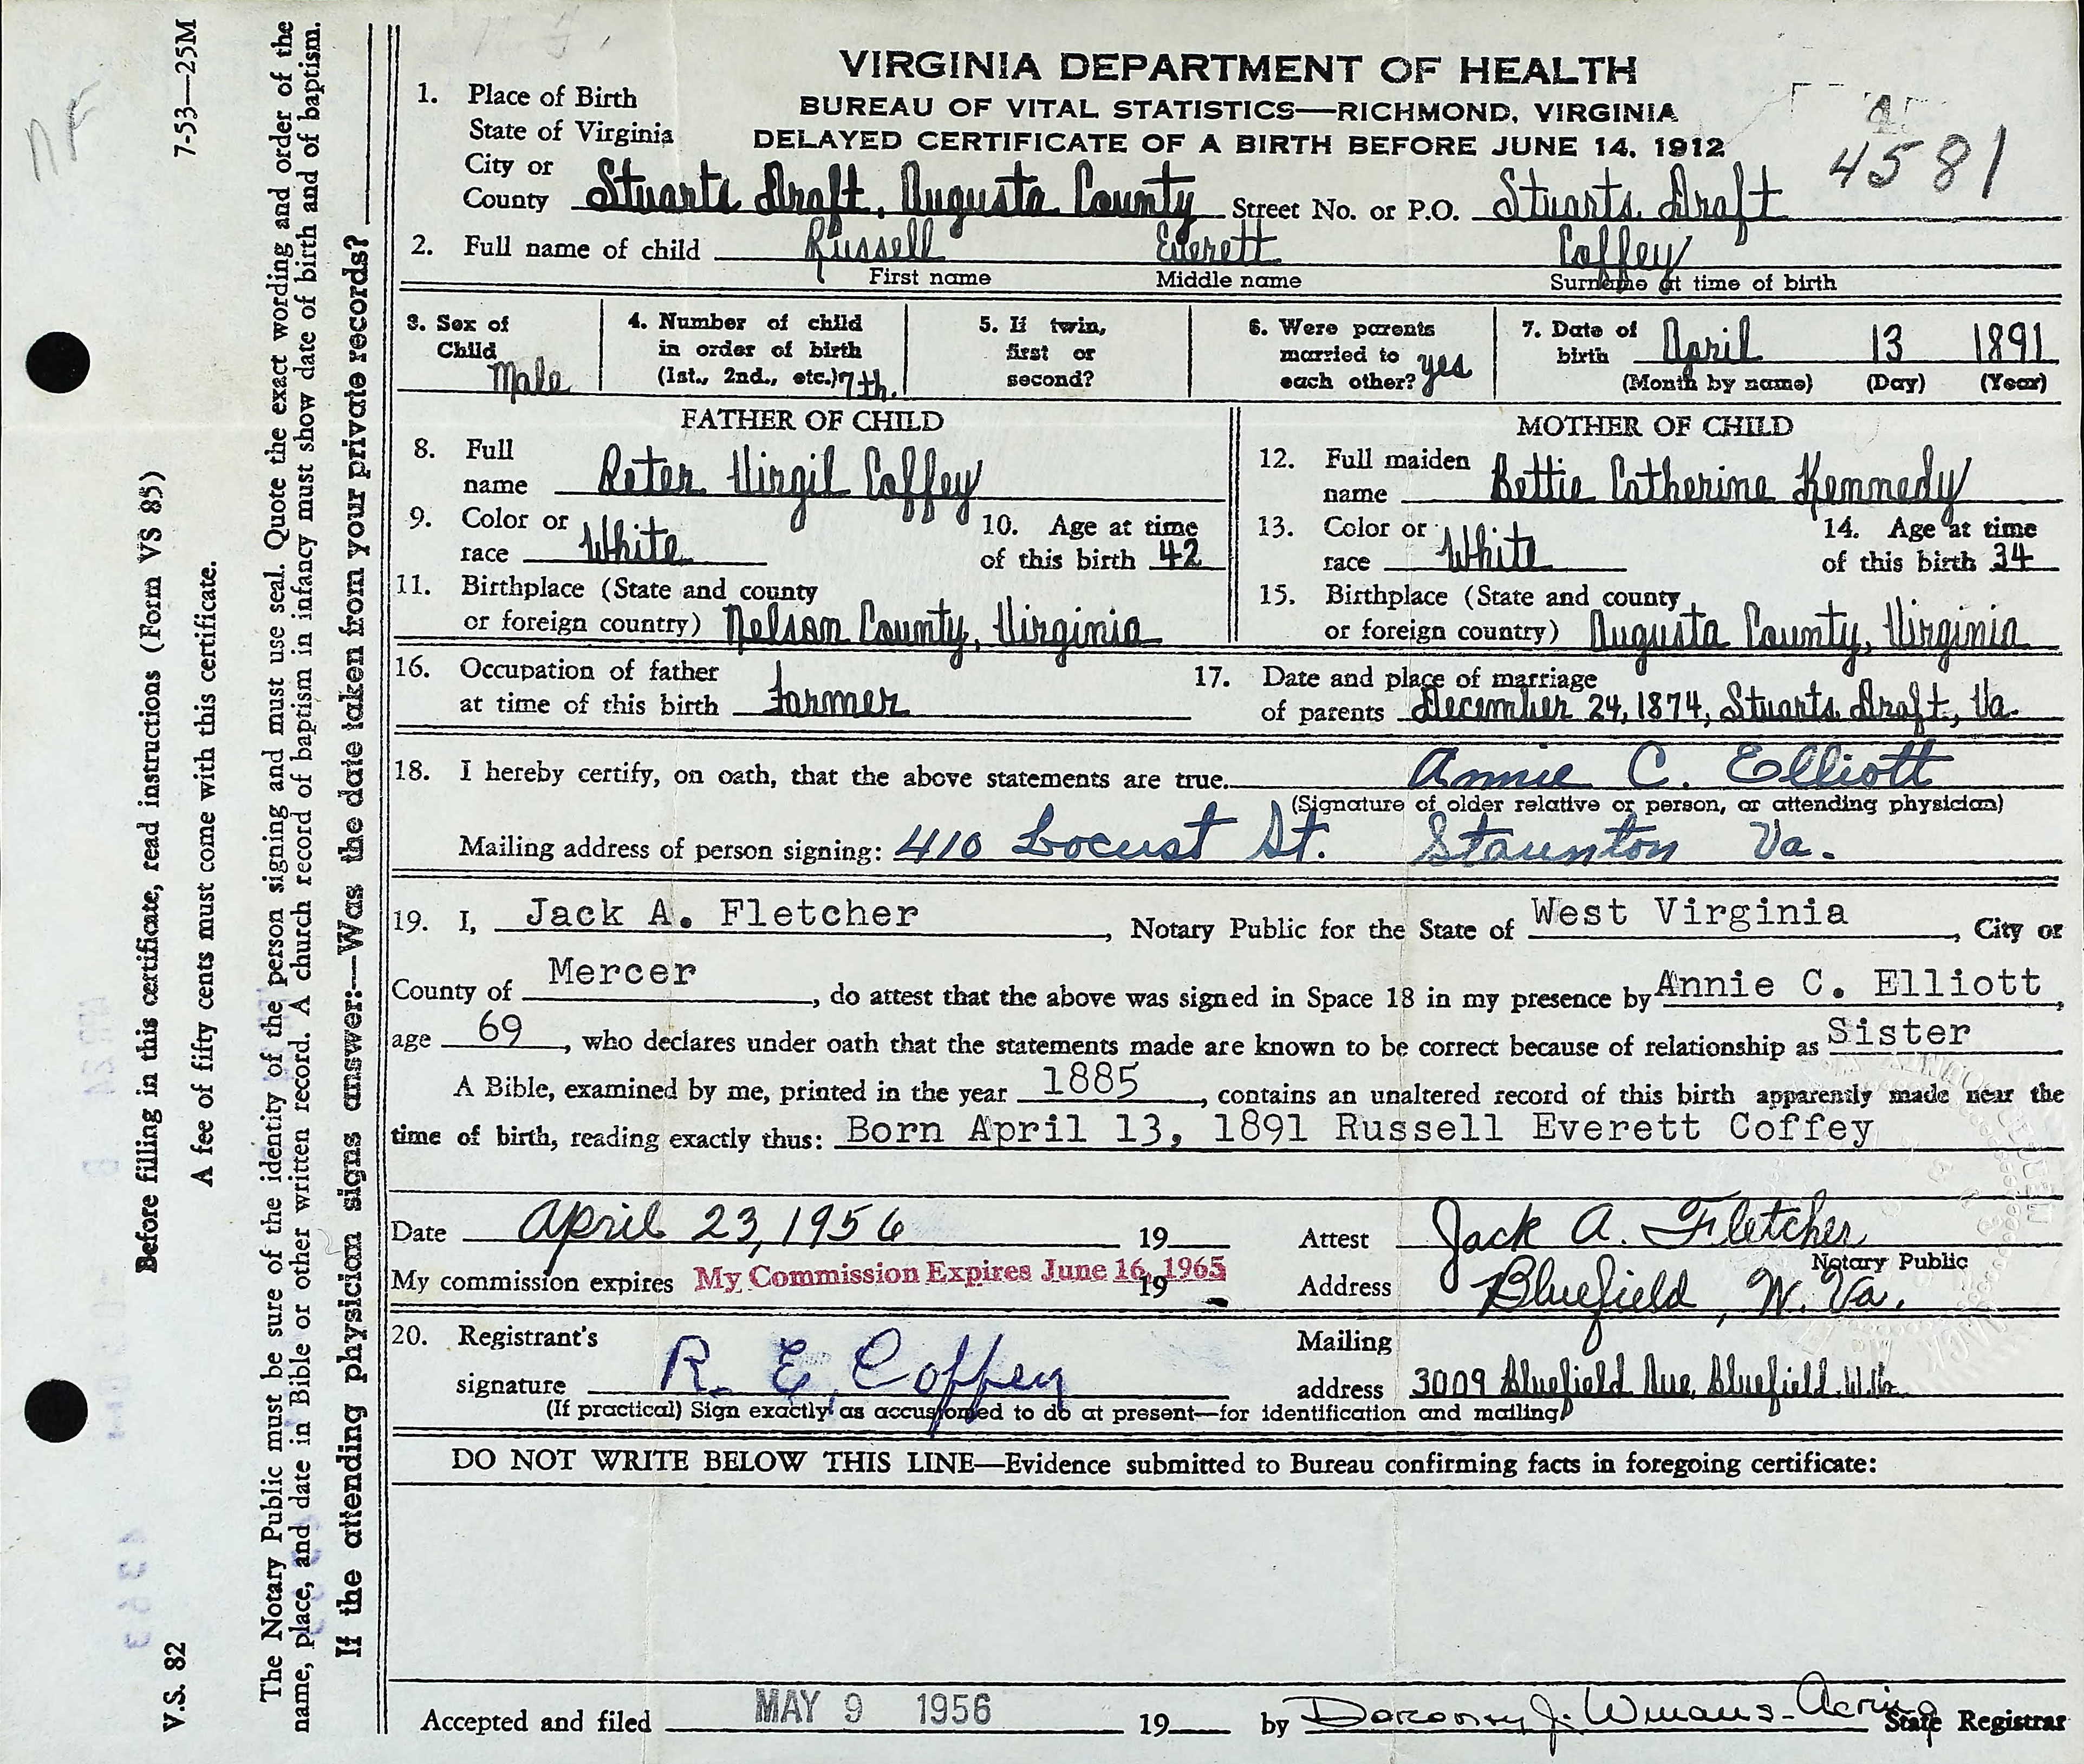 VIRGINIA DEPARTMENT OF HEALTH
BUREAU OF VITAL STATISTICS—RICHMOND, VIRGINIA
DELAYED CERTIFICATE OF A BIRTH BEFORE JUNE 14, 1912
4581
1. Place of Birth
State of Virginia
City or
County Stuarts Draft, Augusta County Street No. or P.O. Stuarts Draft
2. Full name of child Russell Everett Coffey
First name Middle name Surname at time of birth
3. Sex of Child Male
4. Number of child in order of birth (1st., 2nd., etc.) 7th.
5. If twin, first or second?
6. Were parents married to each other? yes
7. Date of birth April 13 1891
(Month by name) (Day) (Year)
FATHER OF CHILD
8. Full name Peter Virgil Coffey
9. Color or race White 10. Age at time of this birth 42
11. Birthplace (State and county
or foreign country) Nelson County, Virginia
MOTHER OF CHILD
12. Full maiden name Bettie Catherine Kennedy
13. Color or race White 14. Age at time of this birth 34
15. Birthplace (State and county
or foreign country) Augusta County, Virginia
16. Occupation of father
at time of this birth Farmer
17. Date and place of marriage
of parents December 24, 1874, Stuarts Draft, Va.
18. I hereby certify, on oath, that the above statements are true. Annie C. Elliott
(Signature of older relative or person, or attending physician)
Mailing address of person signing: 410 Locust St. Staunton Va.
19. I, Jack A. Fletcher, Notary Public for the State of West Virginia, City or
County of Mercer, do attest that the above was signed in Space 18 in my presence by Annie C. Elliott,
age 69, who declares under oath that the statements made are known to be correct because of relationship as Sister
A Bible, examined by me, printed in the year 1885, contains an unaltered record of this birth apparently made near the
time of birth, reading exactly thus: Born April 13, 1891 Russell Everett Coffey
Date April 23, 1956 19 Attest Jack A. Fletcher
Notary Public
My commission expires My Commission Expires June 16, 1965 19 Address Bluefield, W. Va.
20. Registrant's signature R. E. Coffey Mailing address 3009 Bluefield Ave, Bluefield, W.Va.
(If practical) Sign exactly as accustomed to do at present—for identification and mailing
DO NOT WRITE BELOW THIS LINE—Evidence submitted to Bureau confirming facts in foregoing certificate:
Accepted and filed MAY 9 1956 19 by J. Acting State Registrar
V.S. 82 7-53—25M
Before filling in this certificate, read instructions (Form VS 85)
A fee of fifty cents must come with this certificate.
The Notary Public must be sure of the identity of the person signing and must use seal. Quote the exact wording and order of the
name, place, and date in Bible or other written record. A church record of baptism in infancy must show date of birth and of baptism.
If the attending physician signs answer:—Was the date taken from your private records?